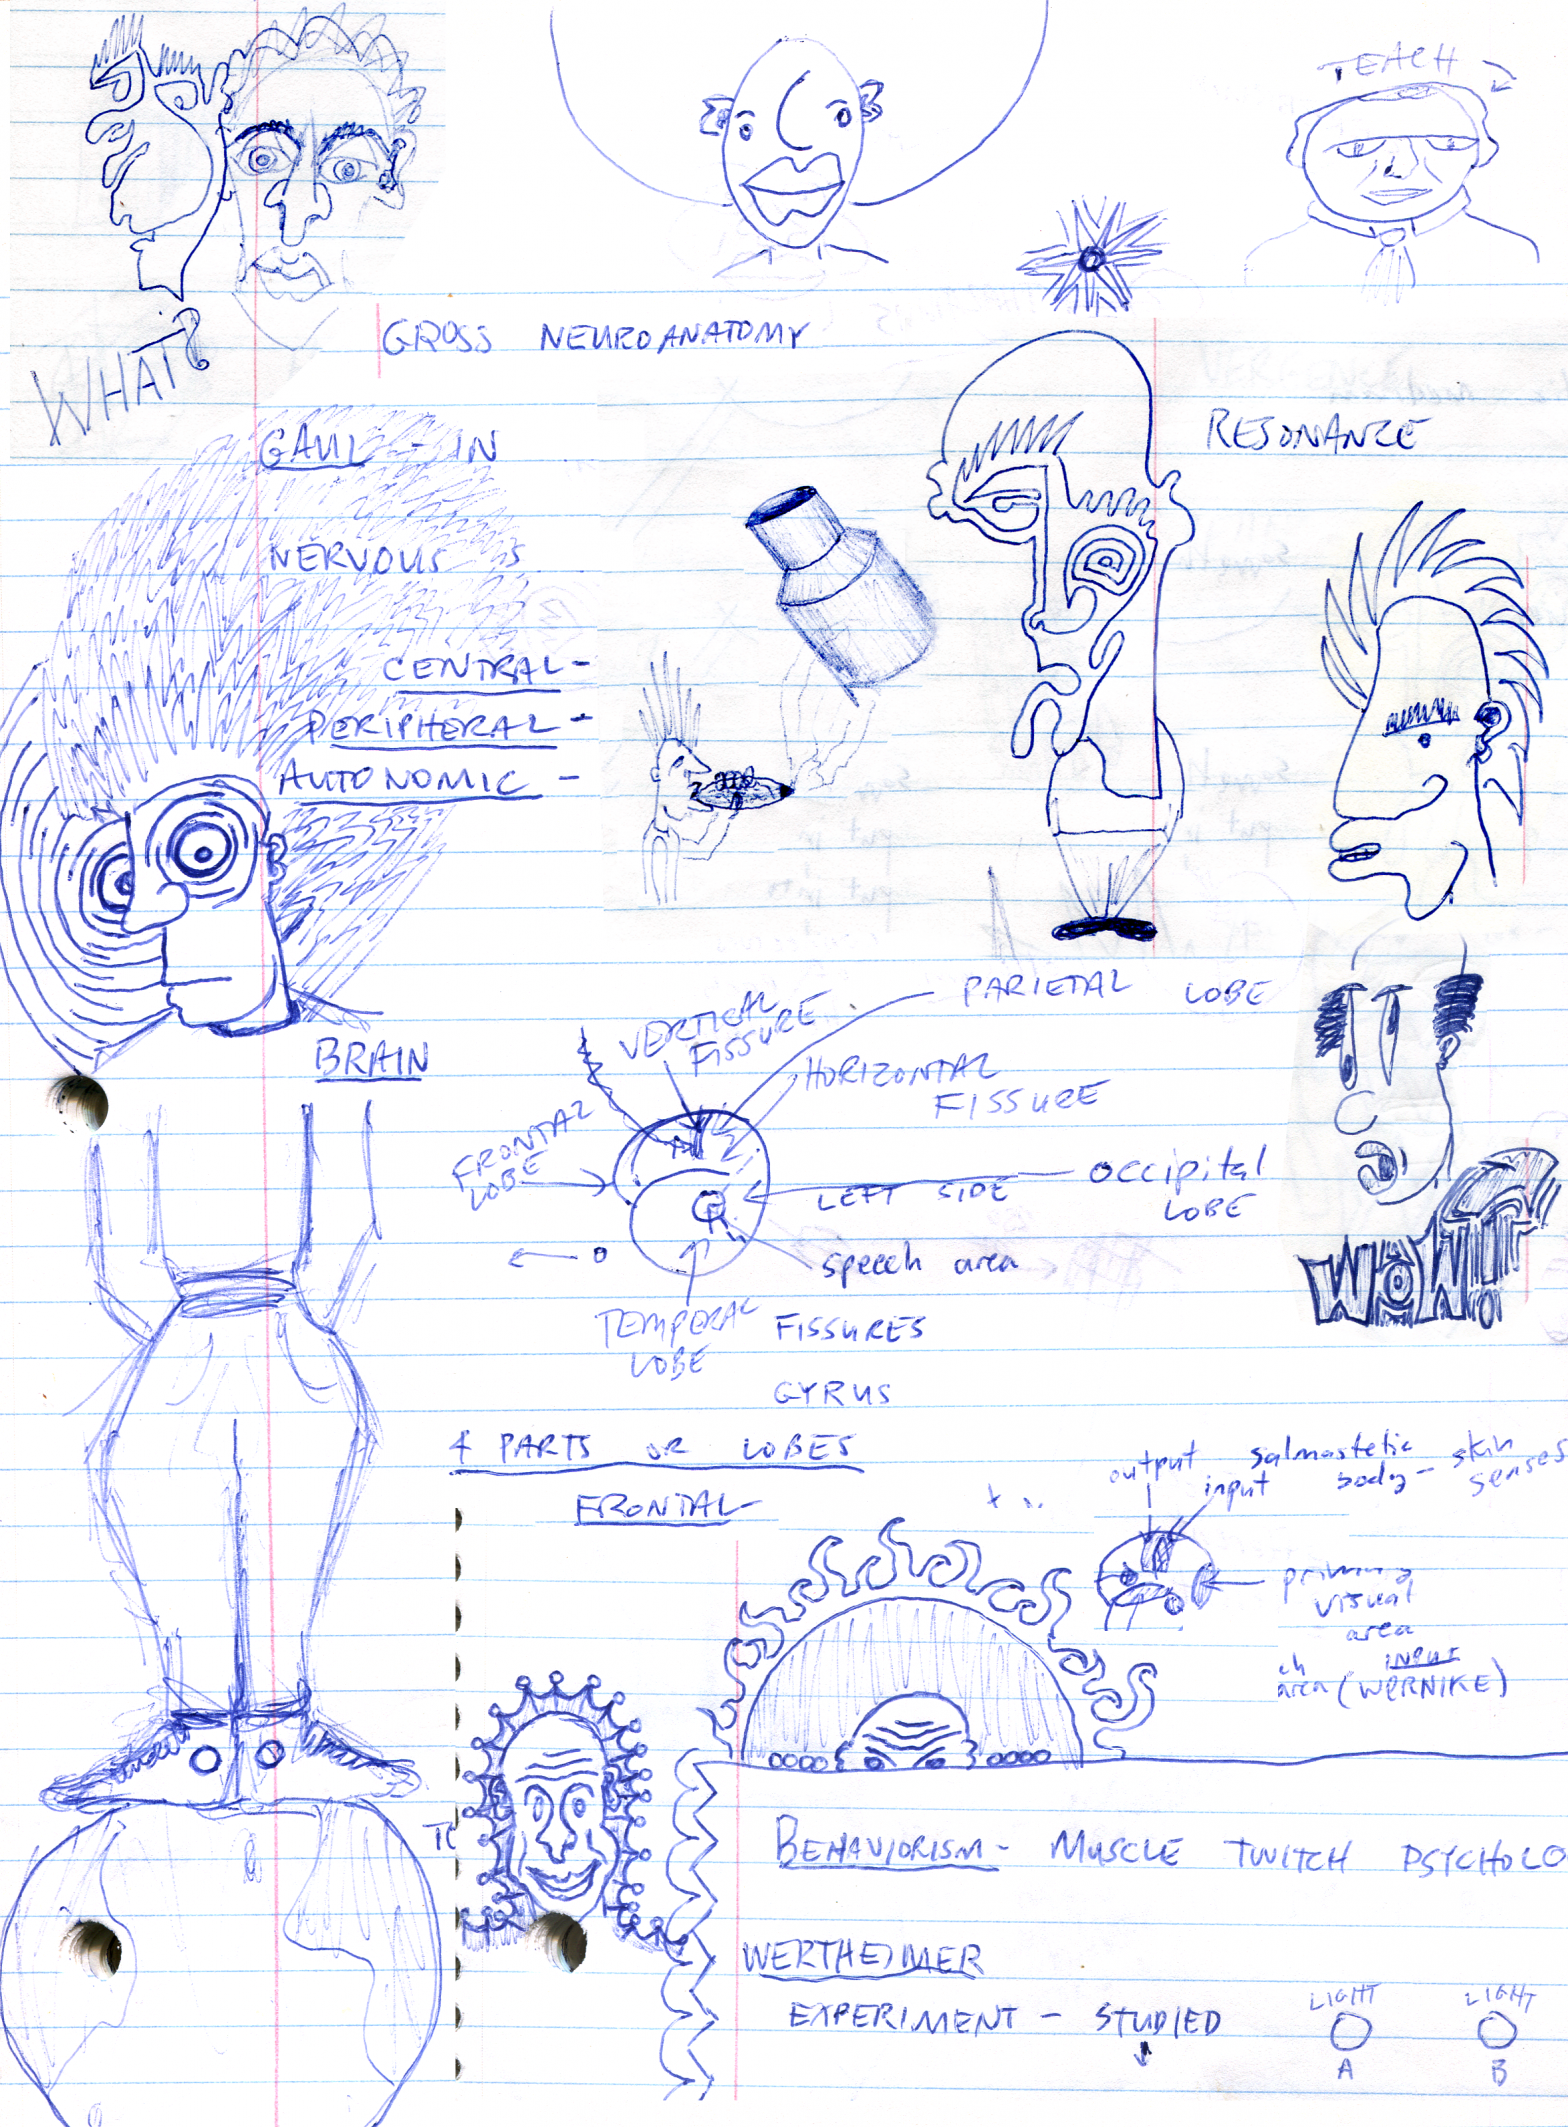 TEACH
WHAT?
GROSS NEUROANATOMY
RESONANCE
GAUL - IN
NERVOUS S
CENTRAL -
PERIPHERAL -
AUTONOMIC -
BRAIN
PARIETAL LOBE
VERTICAL
FISSURE
HORIZONTAL
FISSURE
FRONTAL
LOBE
LEFT SIDE
OCCIPITAL
LOBE
speech area
TEMPORAL
LOBE
FISSURES
GYRUS
4 PARTS OR LOBES
FRONTAL -
output
input
salmostetic
body - skin
senses
primary
visual
area
INPUT
ch
area (WERNIKE)
BEHAVIORISM - MUSCLE TWITCH PSYCHOLO
WERTHEIMER
EXPERIMENT - STUDIED
LIGHT
A
LIGHT
B